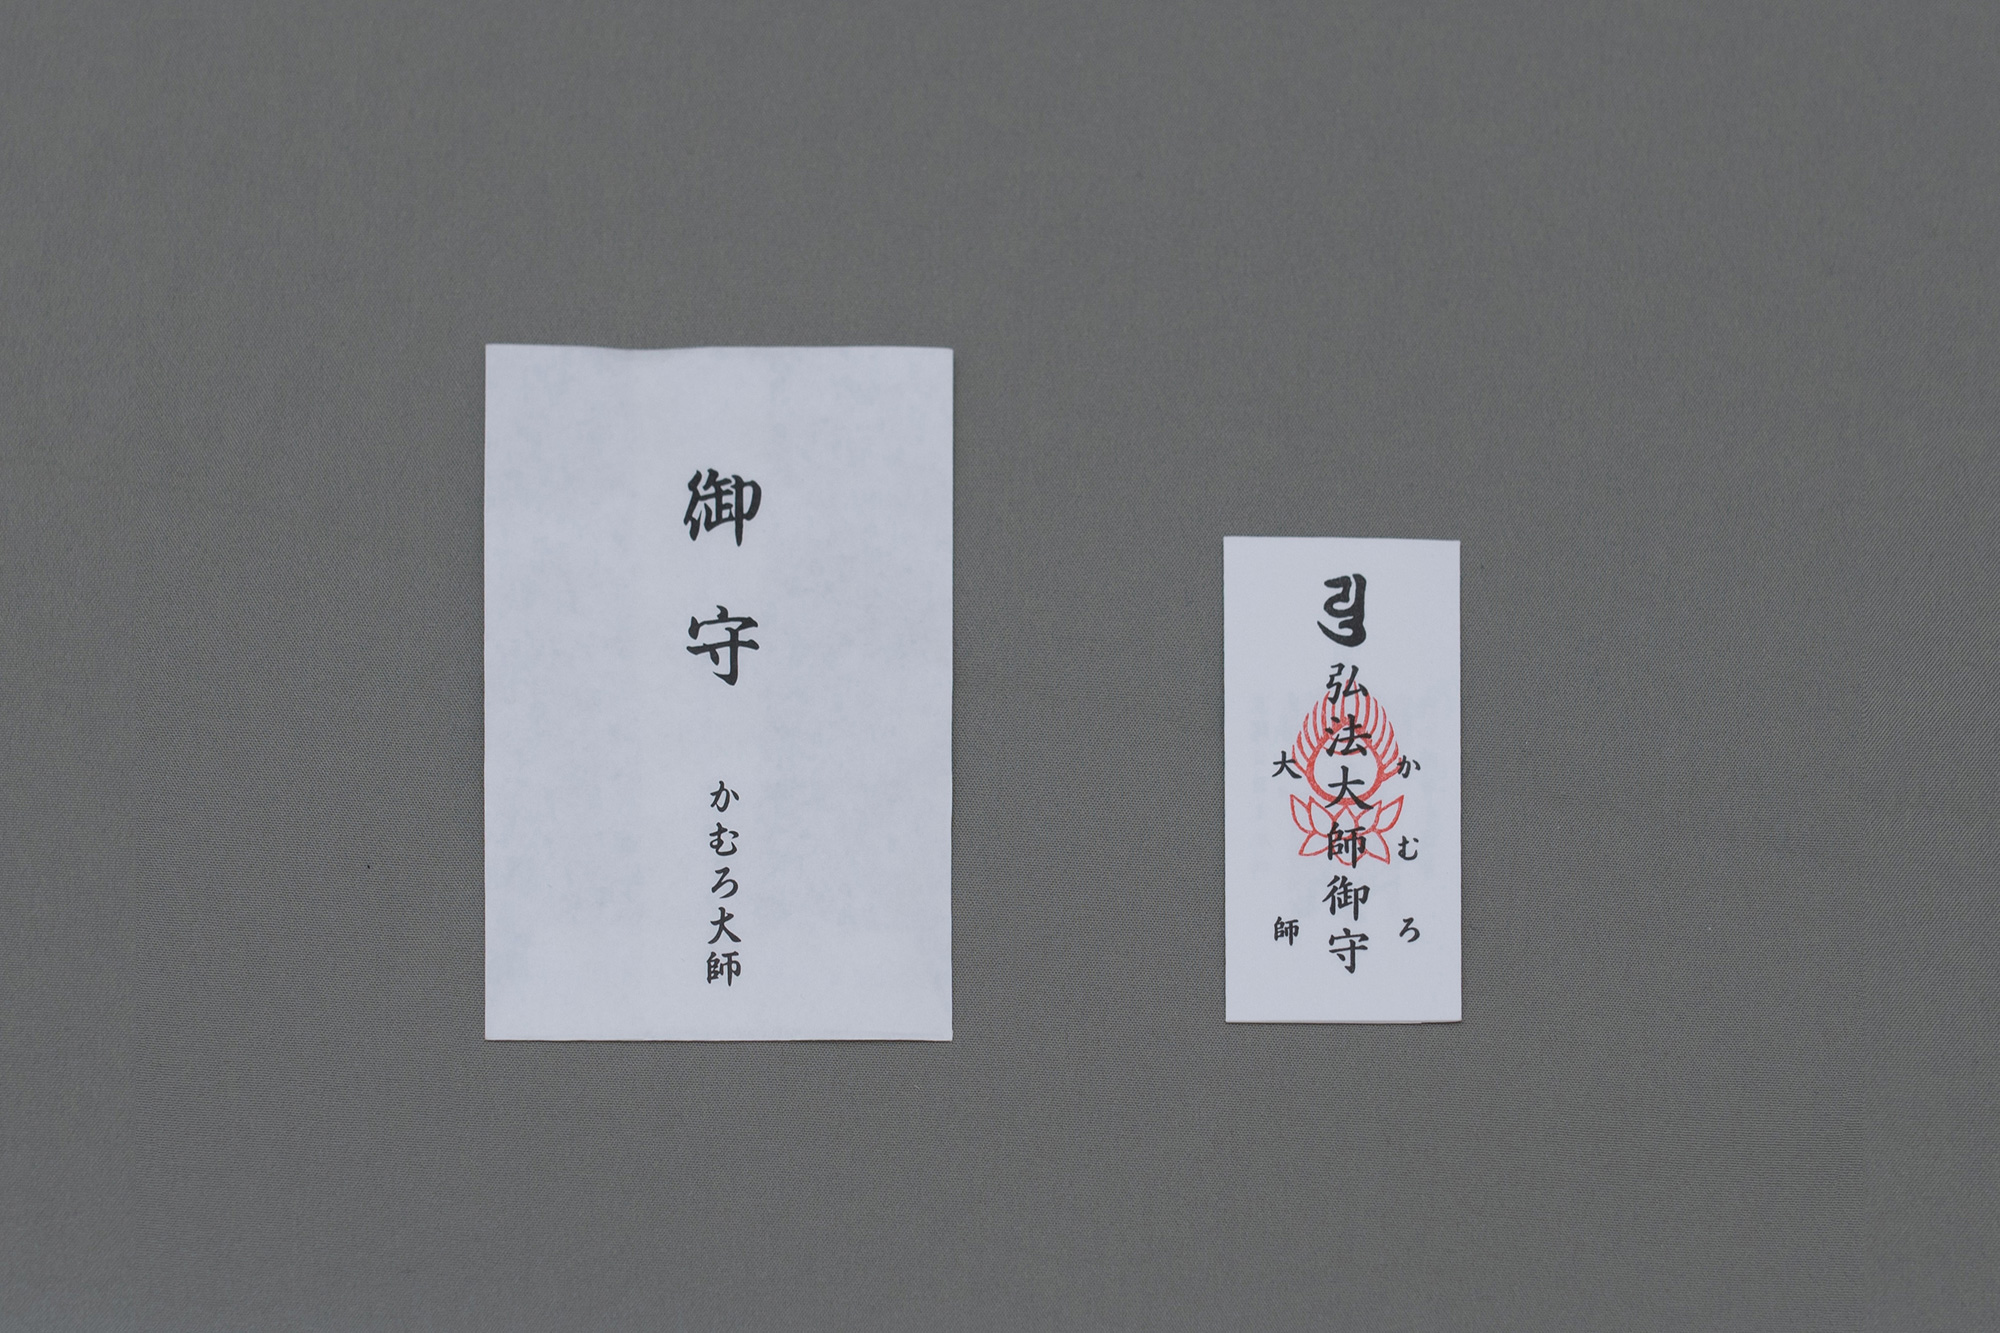 御守
かむろ大師
弘法大師御守
かむろ
大師